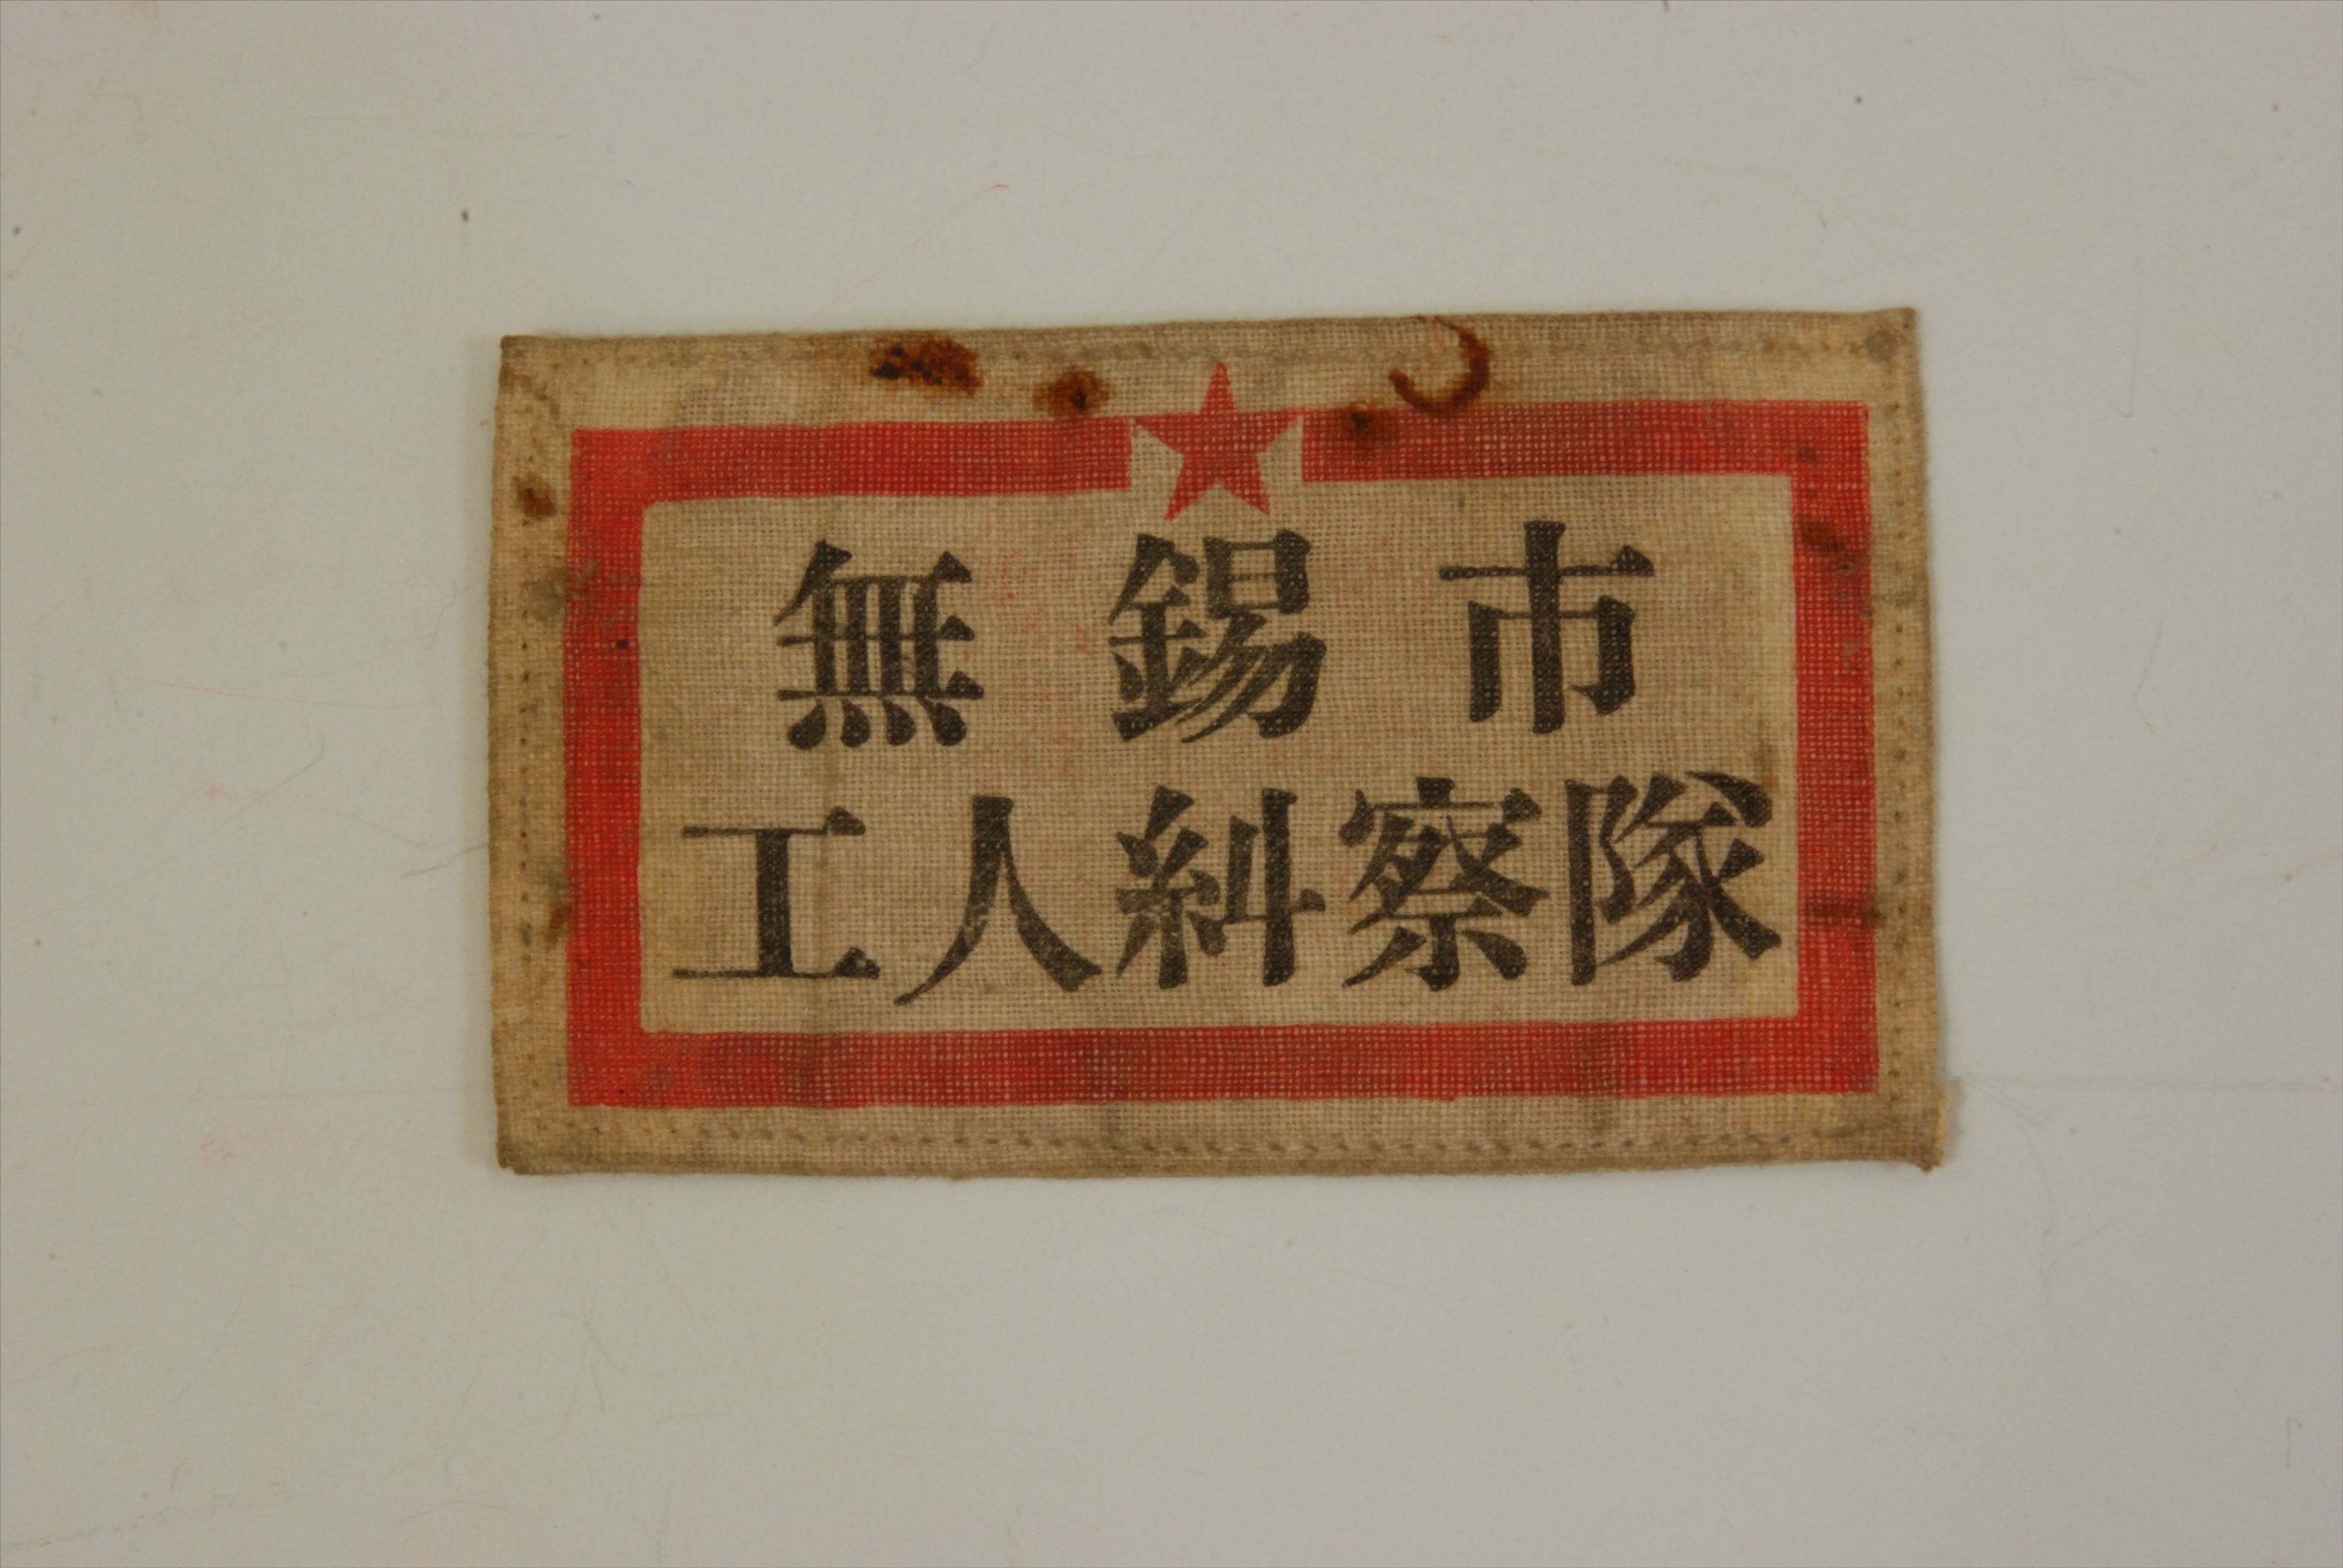 無錫市
工人糾察隊